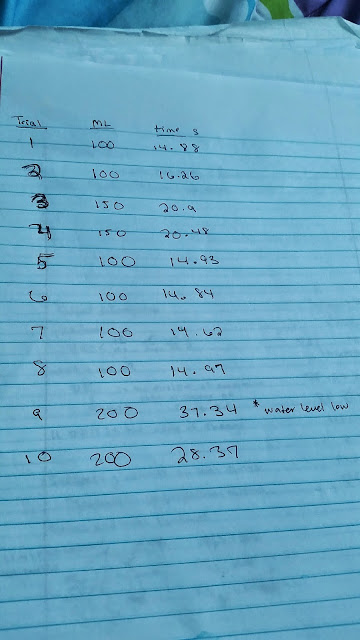 Trial ML time s
1 100 14.88
2 100 16.26
3 150 20.9
4 150 20.48
5 100 14.93
6 100 14.84
7 100 14.62
8 100 14.97
9 200 37.34 * water level low
10 200 28.37